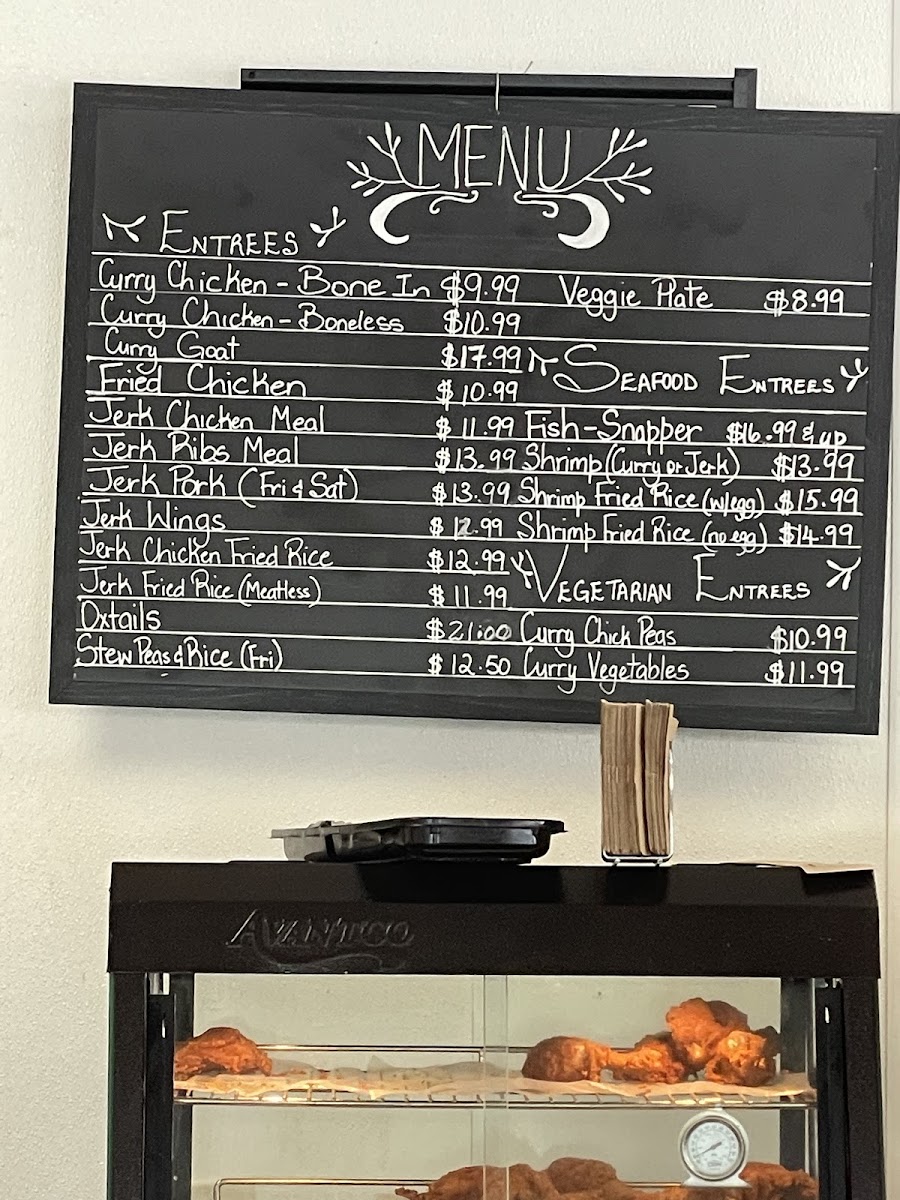 MENU
ENTREES
Curry Chicken - Bone In $9.99
Curry Chicken - Boneless $10.99
Curry Goat $17.99
Fried Chicken $10.99
Jerk Chicken Meal $11.99
Jerk Ribs Meal $13.99
Jerk Pork (Fri & Sat) $13.99
Jerk Wings $12.99
Jerk Chicken Fried Rice $12.99
Jerk Fried Rice (Meatless) $11.99
Oxtails $21.00
Stew Peas & Rice (Fri) $12.50
Veggie Plate $8.99
SEAFOOD ENTREES
Fish - Snapper $16.99 & up
Shrimp (Curry or Jerk) $13.99
Shrimp Fried Rice (w/egg) $15.99
Shrimp Fried Rice (no egg) $14.99
VEGETARIAN ENTREES
Curry Chick Peas $10.99
Curry Vegetables $11.99
AVANTCO